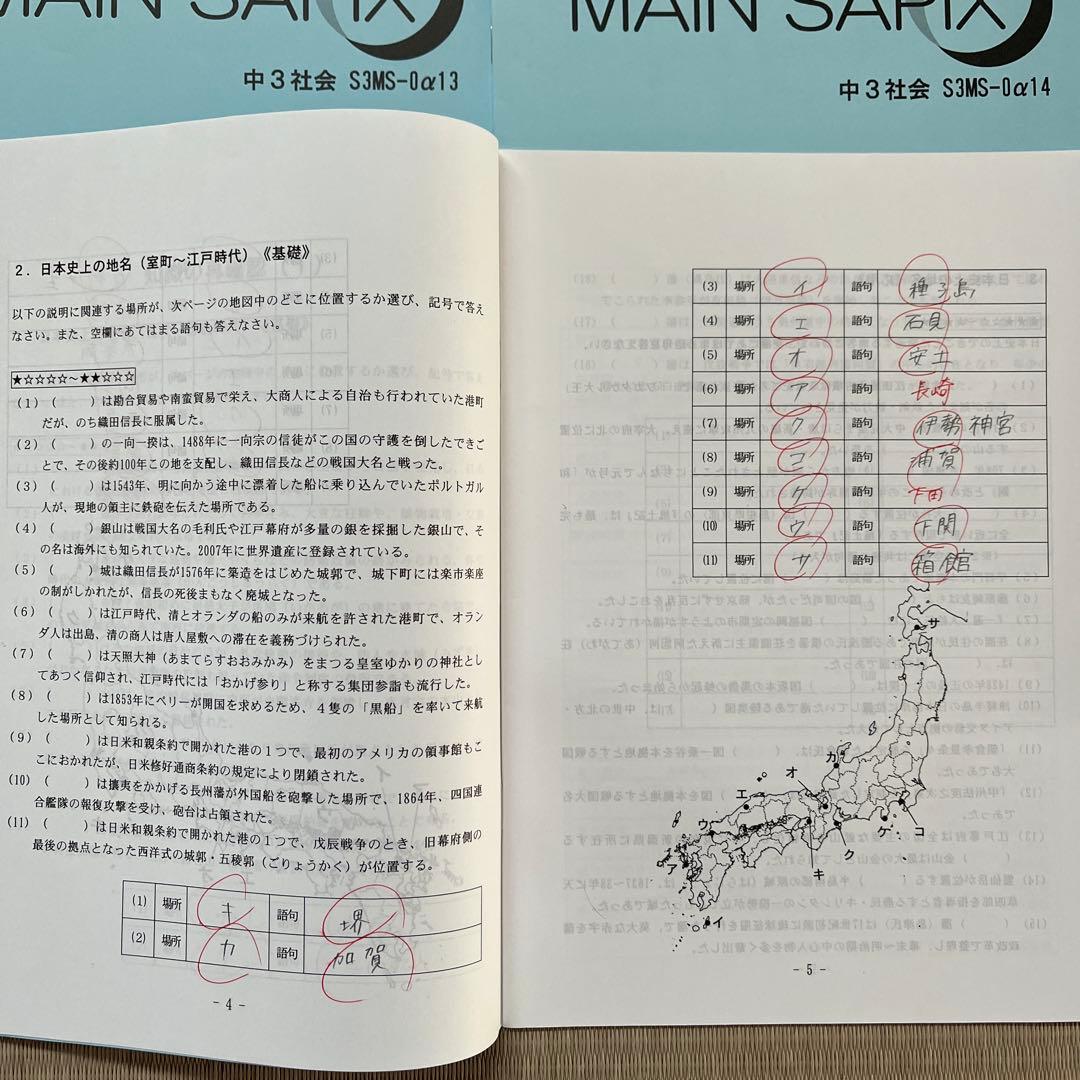 MAIN SAPIX
中3社会 S3MS-0α13
MAIN SAPIX
中3社会 S3MS-0α14
2．日本史上の地名（室町～江戸時代）《基礎》
以下の説明に関連する場所が、次ページの地図中のどこに位置するか選び、記号で答え
なさい。また、空欄にあてはまる語句も答えなさい。
★☆☆☆☆～★★☆☆☆
(1) (　　) は勘合貿易や南蛮貿易で栄え、大商人による自治も行われていた港町
だが、のち織田信長に服属した。
(2) (　　) の一向一揆は、1488年に一向宗の信徒がこの国の守護を倒したできご
とで、その後約100年この地を支配し、織田信長などの戦国大名と戦った。
(3) (　　) は1543年、明に向かう途中に漂着した船に乗り込んでいたポルトガル
人が、現地の領主に鉄砲を伝えた場所である。
(4) (　　) 銀山は戦国大名の毛利氏や江戸幕府が多量の銀を採掘した銀山で、そ
の名は海外にも知られていた。2007年に世界遺産に登録されている。
(5) (　　) 城は織田信長が1576年に築造をはじめた城郭で、城下町には楽市楽座
の制がしかれたが、信長の死後まもなく廃城となった。
(6) (　　) は江戸時代、清とオランダの船のみが来航を許された港町で、オラン
ダ人は出島、清の商人は唐人屋敷への滞在を義務づけられた。
(7) (　　) は天照大神（あまてらすおおみかみ）をまつる皇室ゆかりの神社とし
てあつく信仰され、江戸時代には「おかげ参り」と称する集団参詣も流行した。
(8) (　　) は1853年にペリーが開国を求めるため、４隻の「黒船」を率いて来航
した場所として知られる。
(9) (　　) は日米和親条約で開かれた港の１つで、最初のアメリカの領事館もこ
こにおかれたが、日米修好通商条約の規定により閉鎖された。
(10) (　　) は攘夷をかかげる長州藩が外国船を砲撃した場所で、1864年、四国連
合艦隊の報復攻撃を受け、砲台は占領された。
(11) (　　) は日米和親条約で開かれた港の１つで、戊辰戦争のとき、旧幕府側の
最後の拠点となった西洋式の城郭・五稜郭（ごりょうかく）が位置する。
(1) 場所 キ 語句 堺
(2) 場所 カ 語句 加賀
- 4 -
(3) 場所 イ 語句 種子島
(4) 場所 エ 語句 石見
(5) 場所 オ 語句 安土
(6) 場所 ア 語句 長崎
(7) 場所 ク 語句 伊勢神宮
(8) 場所 コ 語句 浦賀
(9) 場所 ケ 語句 下田
(10) 場所 ウ 語句 下関
(11) 場所 サ 語句 箱館
サ
カ
オ
エ
ウ
コ
ケ
ク
ア
キ
イ
- 5 -